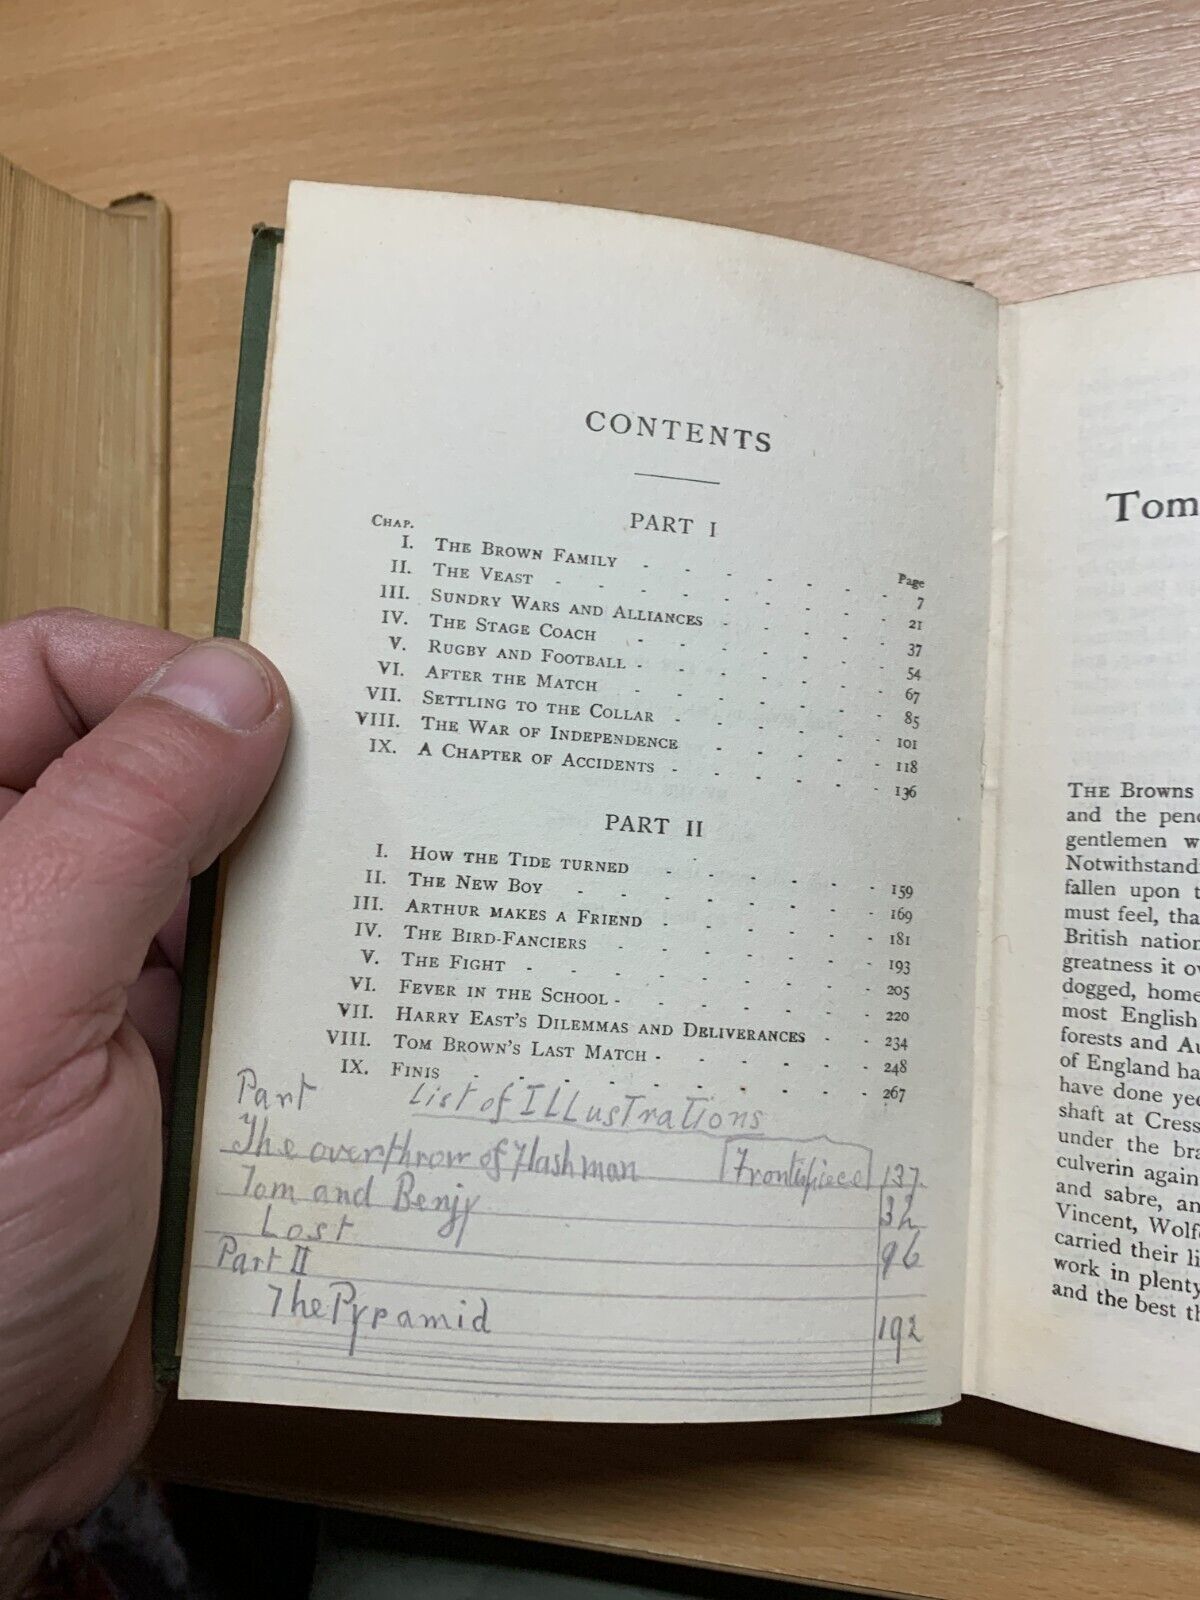 CONTENTS
PART I
CHAP.
Page
I. THE BROWN FAMILY - - - - - - - 7
II. THE VEAST - - - - - - - - 21
III. SUNDRY WARS AND ALLIANCES - - - - - 37
IV. THE STAGE COACH - - - - - - - 54
V. RUGBY AND FOOTBALL - - - - - - - 67
VI. AFTER THE MATCH - - - - - - - 85
VII. SETTLING TO THE COLLAR - - - - - - 101
VIII. THE WAR OF INDEPENDENCE - - - - - 118
IX. A CHAPTER OF ACCIDENTS - - - - - - 136
PART II
I. HOW THE TIDE TURNED - - - - - - 159
II. THE NEW BOY - - - - - - - - 169
III. ARTHUR MAKES A FRIEND - - - - - - 181
IV. THE BIRD-FANCIERS - - - - - - - 193
V. THE FIGHT - - - - - - - - - 205
VI. FEVER IN THE SCHOOL - - - - - - - 220
VII. HARRY EAST'S DILEMMAS AND DELIVERANCES - - 234
VIII. TOM BROWN'S LAST MATCH - - - - - - 248
IX. FINIS - - - - - - - - - 267
Part List of ILLusTrations
The overthrow of Flashman Frontispiece 137.
Tom and Benjy 32
Lost 96
Part II
The Pyramid 192
Tom
THE Browns
and the
gentlemen
fallen upon
must feel,
British
greatness it
dogged,
most English
forests and
of England
have done
shaft at
under the
culverin
and sabre,
Vincent,
carried their
work in plenty
and the best